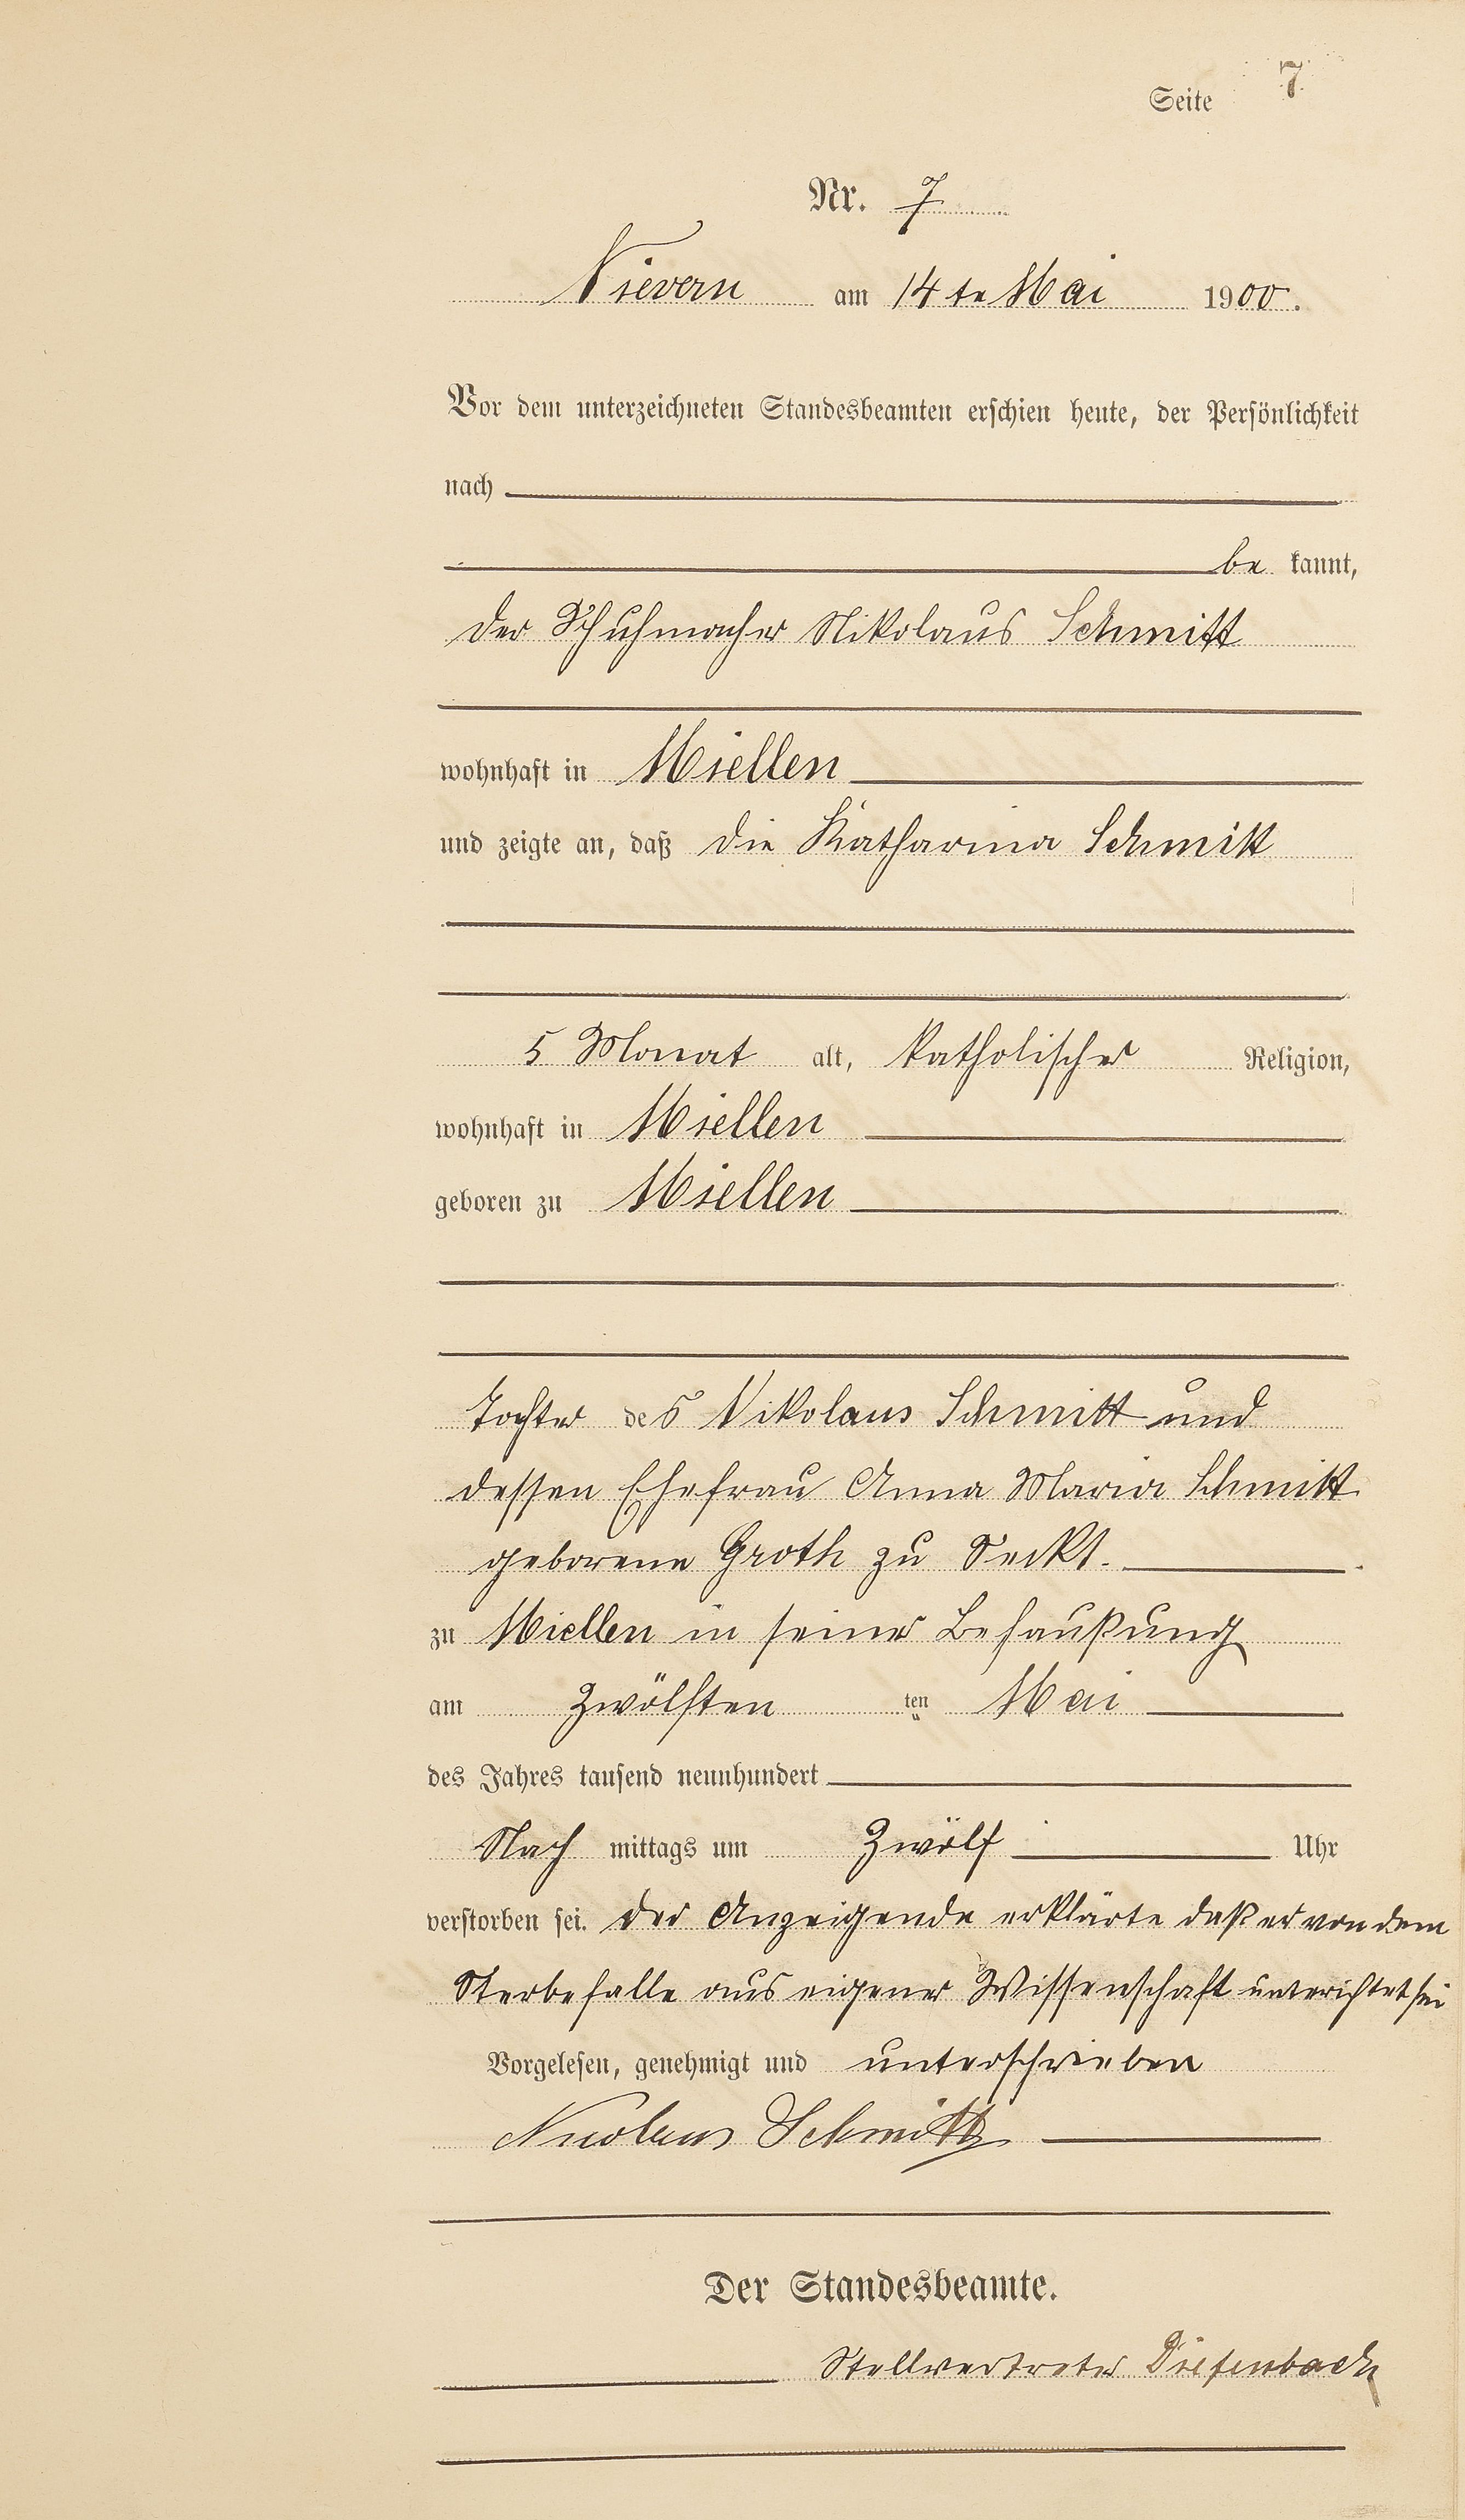 Seite 7
Nr. 7
Nievern am 14te Mai 1900.
Vor dem unterzeichneten Standesbeamten erschien heute, der Persönlichkeit
nach
be kannt,
der Schuhmacher Nikolaus Schmitt
wohnhaft in Miellen
und zeigte an, daß die Katharina Schmitt
5 Monat alt, katholischer Religion,
wohnhaft in Miellen
geboren zu Miellen
Tochter des Nikolaus Schmitt und
dessen Ehefrau Anna Maria Schmitt
geborene Groth zu
zu Miellen in seiner Behaußung
am Zwölften ten Mai
des Jahres tausend neunhundert
Nach mittags um Zwölf Uhr
verstorben sei. Der Anzeigende erklärte daß er von dem
Sterbefalle aus eigener Wissenschaft unterichtet sei
Vorgelesen, genehmigt und unterschrieben
Nicolaus Schmitt
Der Standesbeamte.
Stellvertreter Diefenbach